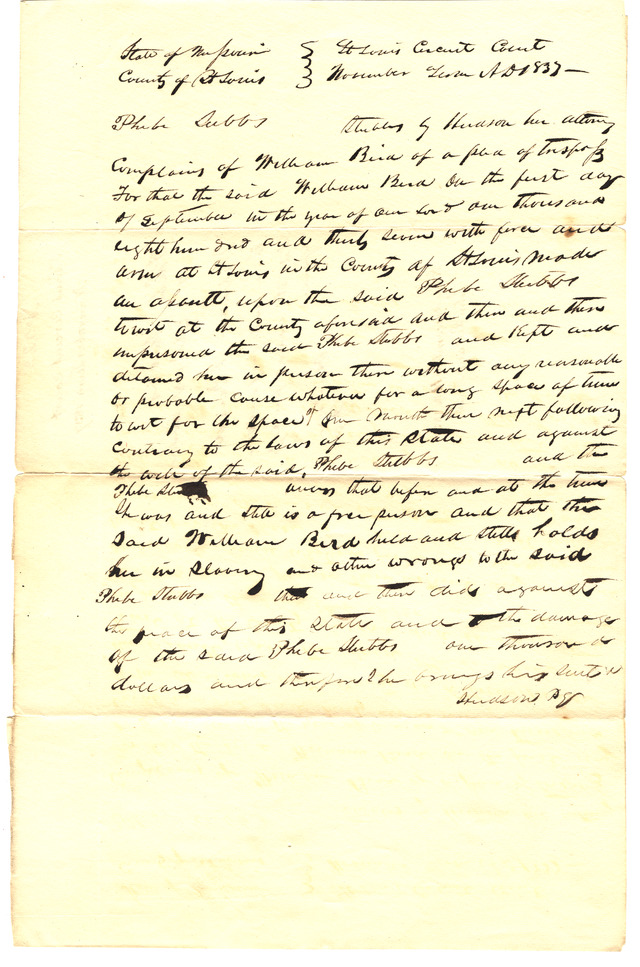 State of Missouri } St Louis Circuit Court
County of St Louis } November Term AD 1837 —
Phebe Stubbs Stubbs by Hudson her attorney
Complains of William Bird of a plea of trespass
For that the said William Bird On the first day
of September in the year of our Lord one thousand
eight hundred and thirty seven with force and
arms at St Louis in the County of St Louis made
an assault, upon the said Phebe Stubbs
to wit at the County aforesaid and then and there
imprisoned the said Phebe Stubbs and Kept and
detained her in prison there without any reasonable
or probable cause whatever for a long space of time
to wit for the space of One Month then next following
Contrary to the laws of this State and against
the will of the said, Phebe Stubbs and the
Phebe avers that before and at the time
She was and still is a free person and that the
Said William Bird held and still holds
her in slavery and other wrongs to the said
Phebe Stubbs then and there did against
the peace of this State and to the damage
of the said Phebe Stubbs one thousand
dollars and therefore she brings her suit
Hudson